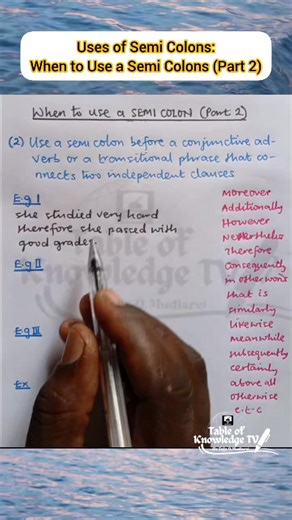 Uses of Semi Colons:
When to Use a Semi Colons (Part 2)
When to use a SEMI COLON (Part 2)
(2) Use a semi colon before a conjunctive ad-
verb or a transitional phrase that co-
nnects two independent clauses
E.g I
She studied very hard
therefore she passed with
good grades.
E.g II
E.g III
Ex
Moreover
Additionally
However
Nevertheless
Therefore
Consequently
in other words
that is
similarly
likewise
meanwhile
subsequently
certainly
above all
otherwise
e.t.c
Table of
Knowledge TV
Table of
Knowledge TV